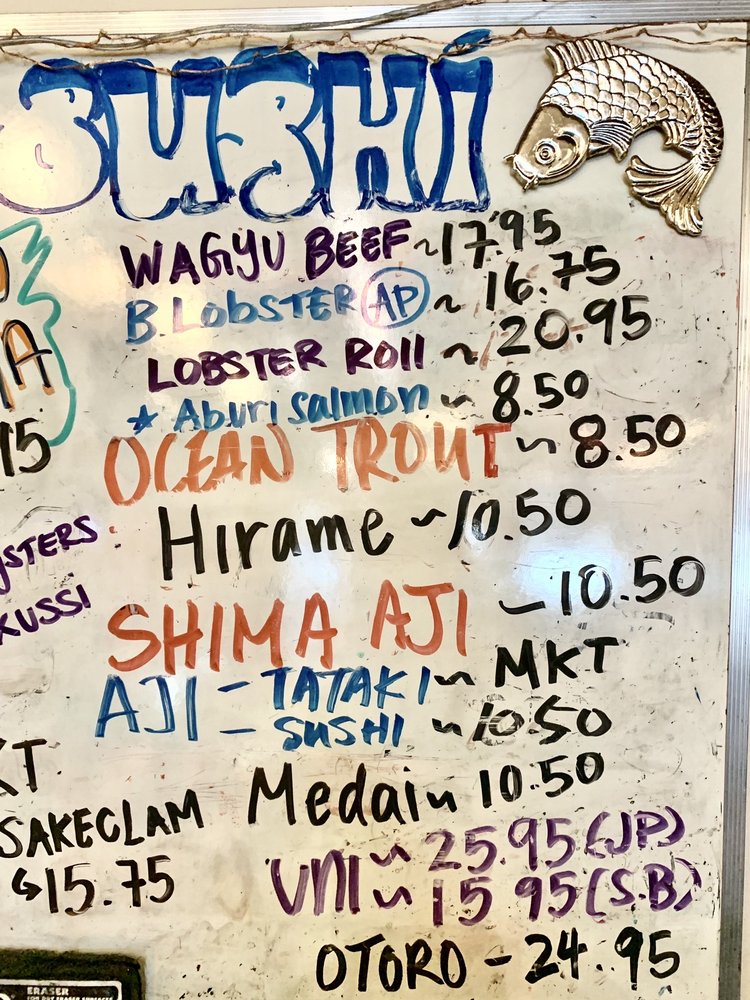 SUSHI
WAGYU BEEF ~ 17.95
B. LOBSTER AP ~ 16.75
LOBSTER ROll ~ 20.95
★ Aburi salmon ~ 8.50
OCEAN TROUT ~ 8.50
Hirame ~ 10.50
SHIMA AJI ~ 10.50
AJI - TATAKI ~ MKT
- SUSHI ~ 10.50
Medai ~ 10.50
UNI ~ 25.95 (JP)
~ 15.95 (S.B)
OTORO - 24.95
15
KUSSI
SAKECLAM
↳ 15.75
ERASER